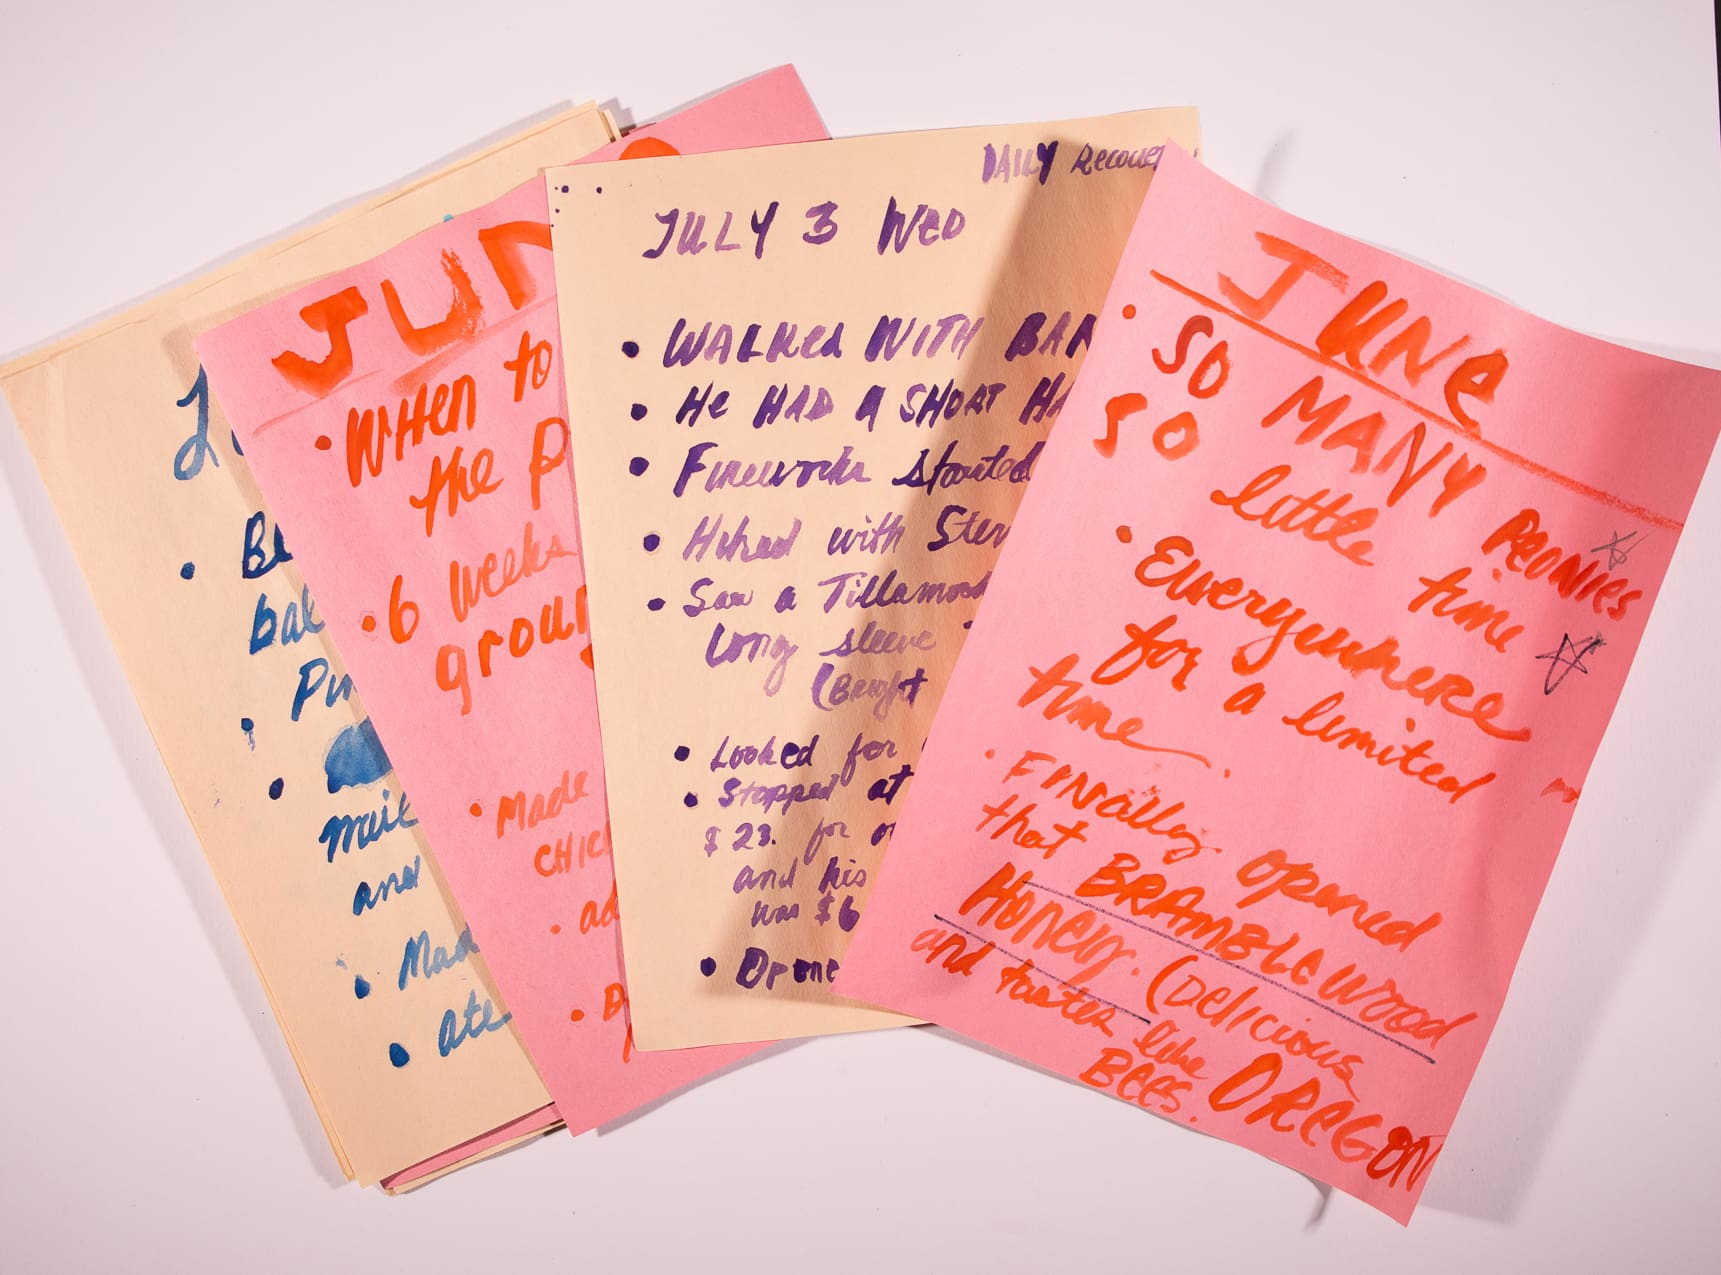 BE
bal
Pu
meil
and
Mad
ate
JUN
• WHEN to
the P
• 6 weeks
groun
• MADE
CHIC
• ad
• B
DAILY Recove
JULY 3 WED
• WALKED WITH BAN
• He HAD A SHORT HA
• Fireworks started
• Hiked with Stev
• Saw a Tillamook
long sleeve
(Bright
• Looked for
• Stopped at
$23. for o
and his
was $6
• Opene
JUNE
• SO MANY PEONIES
SO little time
• Everywhere
for a limited
time.
• FINally opened
that BRAMBLEWOOD
Honey. (Delicious
and tastes like OREGON
Bees.